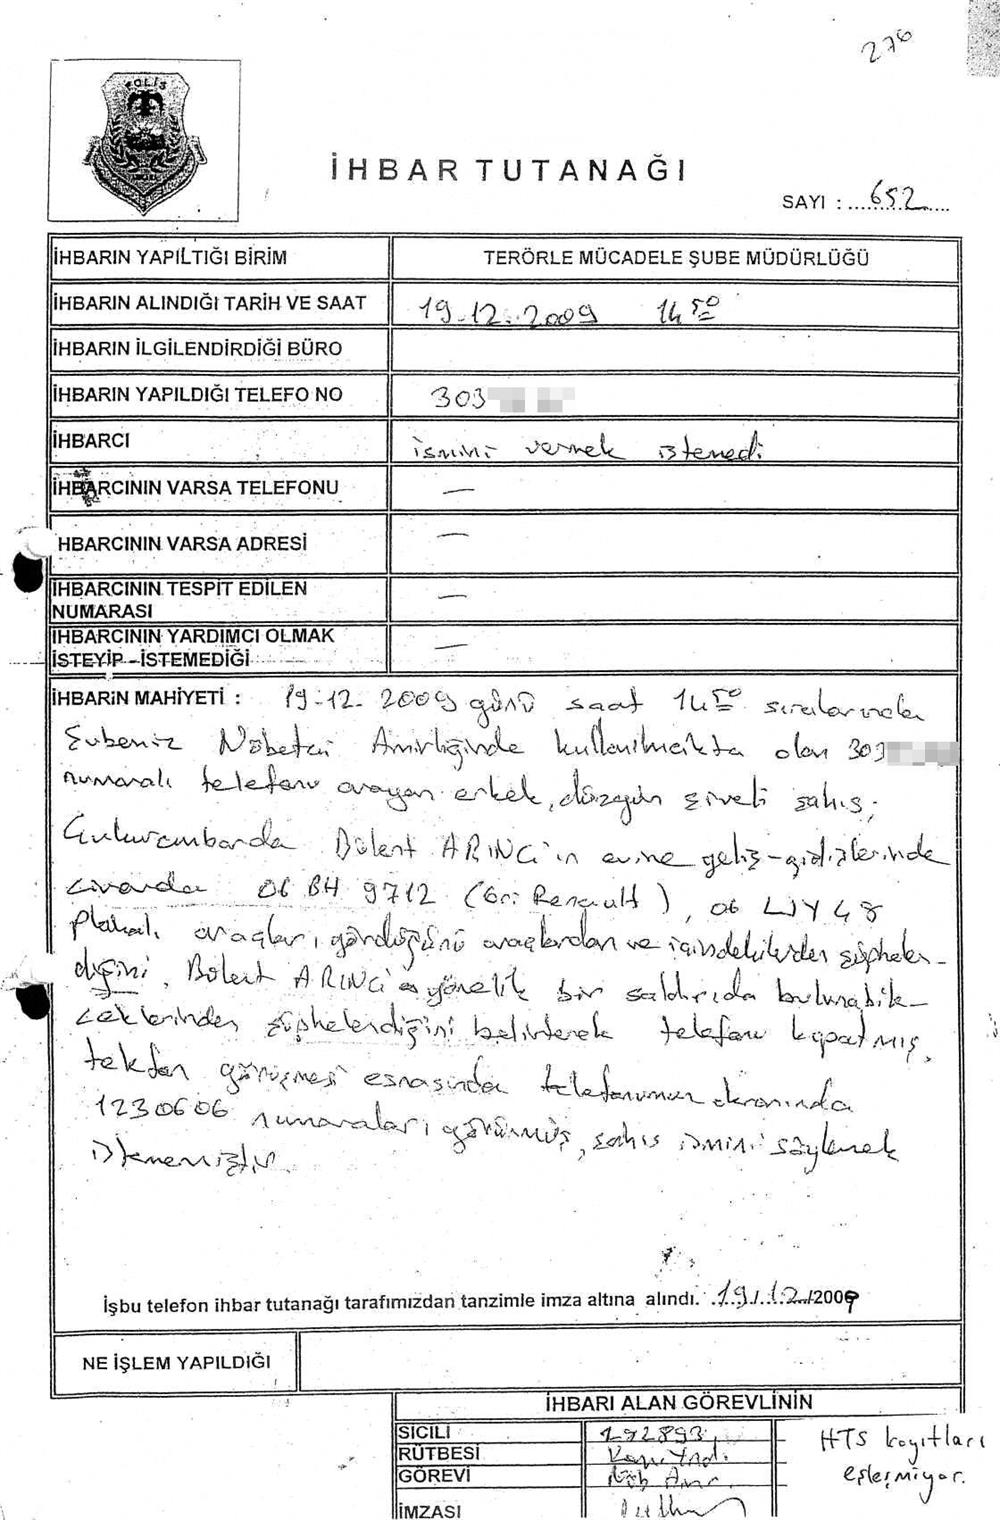 276
POLİS
İHBAR TUTANAĞI
SAYI : ....652....
İHBARIN YAPILTIĞI BİRİM TERÖRLE MÜCADELE ŞUBE MÜDÜRLÜĞÜ
İHBARIN ALINDIĞI TARİH VE SAAT 19.12.2009 14 50
İHBARIN İLGİLENDİRDİĞİ BÜRO
İHBARIN YAPILDIĞI TELEFO NO 303
İHBARCI ismini vermek istemedi
İHBARCININ VARSA TELEFONU —
HBARCININ VARSA ADRESİ —
İHBARCININ TESPİT EDİLEN
NUMARASI —
İHBARCININ YARDIMCI OLMAK
İSTEYİP -İSTEMEDİĞİ —
İHBARIN MAHİYETİ : 19.12.2009 günü saat 14 50 sıralarında
Şubemiz Nöbetçi Amirliğinde kullanılmakta olan 303
numaralı telefonu arayan erkek, düzgün şiveli şahıs;
Çukurambarda Bülent ARINÇ'ın evine geliş-gidişlerinde
civarda 06 BH 9712 (Gri Renault), 06 LJY 48
plakalı araçları gördüğünü araçlardan ve içindekilerden şüphelen-
diğini, Bülent ARINÇ'a yönelik bir saldırıda bulunabile-
ceklerinden şüphelendiğini belirterek telefonu kapatmış,
telefon görüşmesi esnasında telefonumuz ekranında
1230606 numaraları görünmüş, şahıs ismini söylemek
istememiştir.
İşbu telefon ihbar tutanağı tarafımızdan tanzimle imza altına alındı. 19/12/2009
NE İŞLEM YAPILDIĞI
İHBARI ALAN GÖREVLİNİN
SİCİLİ 192893
RÜTBESİ
GÖREVİ Nöb. Amr.
İMZASI
HTS kayıtları
eşleşmiyor.